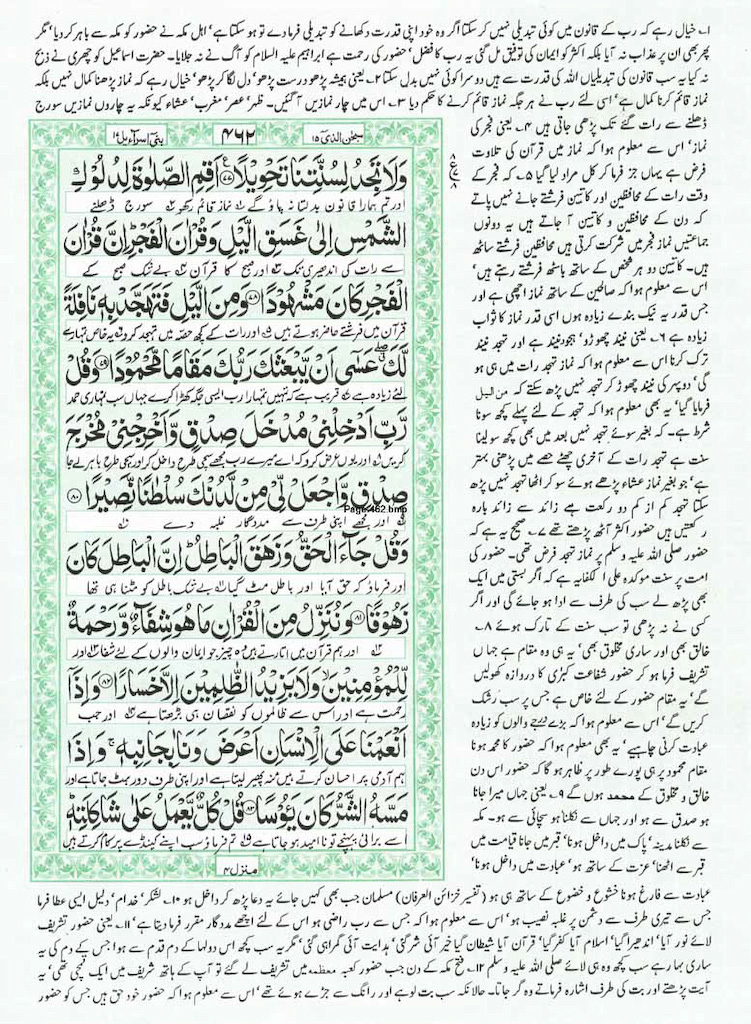 ۱۔ خیال رہے کہ رب کے قانون میں کوئی تبدیلی نہیں کر سکتا اگر وہ خود اپنی قدرت دکھانے کو تبدیلی فرما دے تو ہو سکتا ہے' اہل مکہ نے حضور کو مکہ سے باہر کر دیا' مگر
پھر بھی ان پر عذاب نہ آیا بلکہ اکثر کو ایمان کی توفیق مل گئی یہ رب کا فضل' حضور کی رحمت ہے ابراہیم علیہ السلام کو آگ نے نہ جلایا۔ حضرت اسماعیل کو چھری نے ذبح
نہ کیا یہ سب قانون کی تبدیلیاں اللہ کی قدرت سے ہیں دوسرا کوئی نہیں بدل سکتا ۲۔ یعنی ہمیشہ پڑھو' درست پڑھو' دل لگا کر پڑھو' خیال رہے کہ نماز پڑھنا کمال نہیں بلکہ
نماز قائم کرنا کمال ہے' اسی لئے رب نے ہر جگہ نماز قائم کرنے کا حکم دیا ۳۔ اس میں چار نمازیں آ گئیں۔ ظہر' عصر' مغرب' عشاء کیونکہ یہ چاروں نمازیں سورج
ڈھلنے سے رات گئے تک پڑھی جاتی ہیں ۴۔ یعنی فجر کی
نماز' اس سے معلوم ہوا کہ نماز میں قرآن کی تلاوت
فرض ہے یہاں جز فرما کر کل مراد لیا گیا ۵۔ کہ فجر کے
وقت رات کے محافظین اور کاتبین فرشتے جانے نہیں پاتے
کہ دن کے محافظین و کاتبین آ جاتے ہیں یہ دونوں
جماعتیں نماز فجر میں شرکت کرتی ہیں محافظین فرشتے ساٹھ
ہیں۔ کاتبین دو ہر شخص کے ساتھ باسٹھ فرشتے رہتے ہیں'
اس سے معلوم ہوا کہ صالحین کے ساتھ نماز اچھی ہے اور
جس قدر یہ نیک بندے زیادہ ہوں اسی قدر نماز کا ثواب
زیادہ ہے ۶۔ یعنی نیند چھوڑو' ہجود نیند ہے اور تہجد نیند
ترک کرنا اس سے معلوم ہوا کہ نماز تہجد رات میں ہی ہو
گی' دوپہر کی نیند چھوڑ کر تہجد نہیں پڑھ سکتے کہ من الیل
فرمایا گیا' یہ بھی معلوم ہوا کہ تہجد کے لئے پہلے کچھ سونا
شرط ہے۔ کہ بغیر سوئے تہجد نہیں بعد میں بھی کچھ سو لینا
سنت ہے تہجد رات کے آخری چھٹے حصے میں پڑھنی بہتر
ہے' جو بغیر نماز عشاء پڑھے ہوئے سو کر اٹھا تہجد نہیں پڑھ
سکتا تہجد کم از کم دو رکعت ہے زائد سے زائد بارہ
رکعتیں ہیں حضور اکثر آٹھ پڑھتے تھے ۷۔ صحیح یہ ہے کہ
حضور صلی اللہ علیہ وسلم پر نماز تہجد فرض تھی۔ حضور کی
امت پر سنت موکدہ علی الکفایہ ہے کہ اگر بستی میں ایک
بھی پڑھ لے سب کی طرف سے ادا ہو جائے گی اور اگر
کسی نے نہ پڑھی تو سب سنت کے تارک ہوئے ۸۔
خالق بھی اور ساری مخلوق بھی' یہ ہی وہ مقام ہے جہاں
تشریف فرما ہو کر حضور شفاعت کبریٰ کا دروازہ کھولیں
گے' یہ مقام حضور کے لئے خاص ہے جس پر سب رشک
کریں گے' اس سے معلوم ہوا کہ بڑے درجے والوں کو زیادہ
عبادت کرنی چاہیے' یہ بھی معلوم ہوا کہ حضور کا محمد ہونا
مقام محمود پر ہی پورے طور پر ظاہر ہو گا کہ حضور اس دن
خالق و مخلوق کے محمد ہوں گے ۹۔ یعنی جہاں میرا جانا
ہو صدق سے ہو اور جہاں سے نکلنا ہو سچائی سے ہو۔ مکہ
سے نکلنا مدینہ' پاک میں داخل ہونا' قبر میں جانا قیامت میں
قبر سے اٹھنا' عزت کے ساتھ ہو' عبادت میں داخل ہونا'
سبحٰن الذی ۱۵
۴۶۲
بنی اسرآءیل ۱۷
وَلَا تَجِدُ لِسُنَّتِنَا تَحْوِيْلًا ﴿۷۷﴾ اَقِمِ الصَّلٰوةَ لِدُلُوْكِ
اور تم ہمارا قانون بدلتا نہ پاؤ گے نماز قائم رکھو سورج ڈھلنے
الشَّمْسِ اِلٰى غَسَقِ الَّيْلِ وَقُرْاٰنَ الْفَجْرِ ؕ اِنَّ قُرْاٰنَ
سے رات کی اندھیری تک اور صبح کا قرآن بے شک صبح کے
الْفَجْرِ كَانَ مَشْهُوْدًا ﴿۷۸﴾ وَمِنَ الَّيْلِ فَتَهَجَّدْ بِهٖ نَافِلَةً
قرآن میں فرشتے حاضر ہوتے ہیں اور رات کے کچھ حصہ میں تہجد کرو یہ خاص تمہارے
لَّكَ ۖ عَسٰٓى اَنْ يَّبْعَثَكَ رَبُّكَ مَقَامًا مَّحْمُوْدًا ﴿۷۹﴾ وَقُلْ
لئے زیادہ ہے قریب ہے کہ تمہیں تمہارا رب ایسی جگہ کھڑا کرے جہاں سب تمہاری حمد
رَّبِّ اَدْخِلْنِيْ مُدْخَلَ صِدْقٍ وَّاَخْرِجْنِيْ مُخْرَجَ
کریں اور یوں عرض کرو کہ اے میرے رب مجھے سچی طرح داخل کر اور سچی طرح باہر لے جا
صِدْقٍ وَّاجْعَلْ لِّيْ مِنْ لَّدُنْكَ سُلْطٰنًا نَّصِيْرًا ﴿۸۰﴾
Page-462.bmp
اور مجھے اپنی طرف سے مددگار غلبہ دے
وَقُلْ جَآءَ الْحَقُّ وَزَهَقَ الْبَاطِلُ ؕ اِنَّ الْبَاطِلَ كَانَ
اور فرماؤ کہ حق آیا اور باطل مٹ گیا بے شک باطل کو مٹنا ہی تھا
زَهُوْقًا ﴿۸۱﴾ وَنُنَزِّلُ مِنَ الْقُرْاٰنِ مَا هُوَ شِفَآءٌ وَّرَحْمَةٌ
اور ہم قرآن میں اتارتے ہیں وہ چیز جو ایمان والوں کے لئے شفا اور
لِّلْمُؤْمِنِيْنَ ۙ وَلَا يَزِيْدُ الظّٰلِمِيْنَ اِلَّا خَسَارًا ﴿۸۲﴾ وَاِذَآ
رحمت ہے اور اس سے ظالموں کو نقصان ہی بڑھتا ہے اور جب
اَنْعَمْنَا عَلَى الْاِنْسَانِ اَعْرَضَ وَنَاٰ بِجَانِبِهٖ ۚ وَاِذَا
ہم آدمی پر احسان کرتے ہیں منہ پھیر لیتا ہے اور اپنی طرف دور ہٹ جاتا ہے اور جب
مَسَّهُ الشَّرُّ كَانَ يَـُٔوْسًا ﴿۸۳﴾ قُلْ كُلٌّ يَّعْمَلُ عَلٰى شَاكِلَتِهٖ ؕ
اسے برائی پہنچے تو نا امید ہو جاتا ہے تم فرماؤ سب اپنے کینڈے پر کام کرتے ہیں
منزل ۴
عبادت سے فارغ ہونا خشوع و خضوع کے ساتھ ہی ہو (تفسیر خزائن العرفان) مسلمان جب بھی کہیں جائے یہ دعا پڑھ کر داخل ہو ۱۰۔ لشکر' خدام' دلیل ایسی عطا فرما
جس سے تیری طرف سے دشمن پر غلبہ نصیب ہو' اس سے معلوم ہوا کہ جس سے رب راضی ہو اس کے لئے اچھے مددگار مقرر فرما دیتا ہے' ۱۱۔ یعنی حضور تشریف
لائے نور آیا' اندھیرا گیا' اسلام آیا کفر گیا' قرآن آیا شیطان گیا خیر آئی شر گئی' ہدایت آئی گمراہی گئی' مگر یہ سب کچھ اس دولہا کے دم قدم سے ہوا جس کے دم کی یہ
ساری بہار ہے سب کچھ وہ ہی لائے صلی اللہ علیہ وسلم ۱۲۔ فتح مکہ کے دن جب حضور کعبہ معظمہ میں تشریف لے گئے تو آپ کے ہاتھ شریف میں ایک لمبی تھی' یہ
آیت پڑھتے اور بت کی طرف اشارہ فرماتے وہ گر جاتا۔ حالانکہ سب بت لوہے اور رانگ سے جڑے ہوئے تھے' اس سے معلوم ہوا کہ حضور خود حق ہیں جس کو حضور